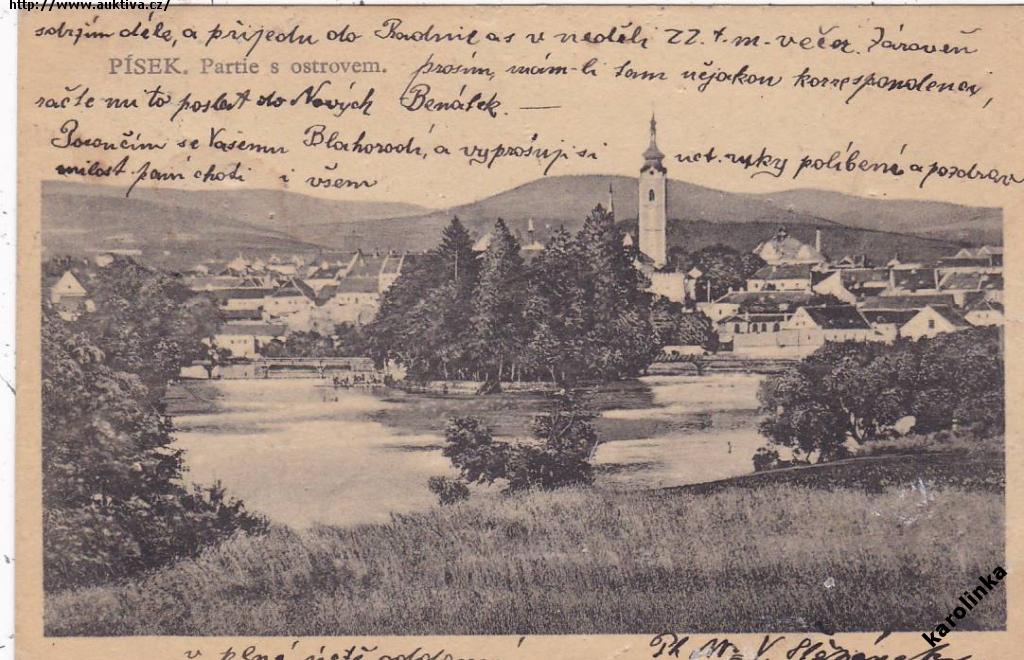 http://www.auktiva.cz/
sdržím déle, a přijedu do Radnic as v neděli 22. t. m. večer. Zároveň
PÍSEK. Partie s ostrovem.
prosím, mám-li tam nějakou korrespondenci,
račte mi to poslat do Nových Benátek. —
Poroučím se Vašemu Blahorodí, a vyprošuji si uct. ruky políbení a pozdrav
milost. paní choti i všem
v plné úctě oddaný
Ph Mr. V.
karolinka